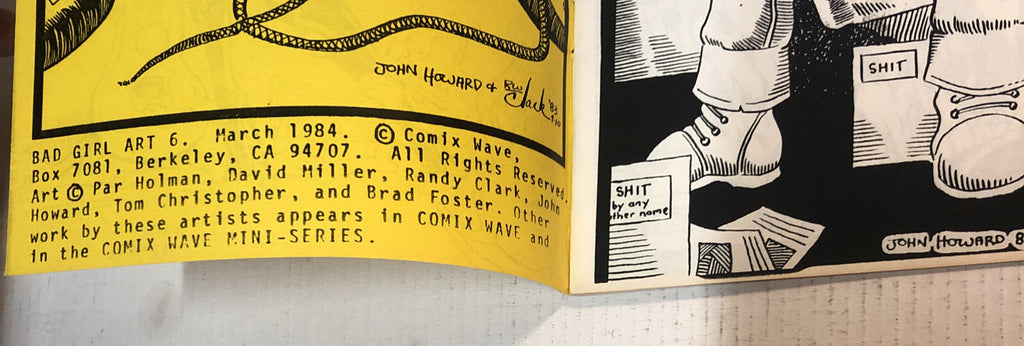 JOHN HOWARD + RW
Clark '83
BAD GIRL ART 6. March 1984. © Comix Wave,
Box 7081, Berkeley, CA 94707. All Rights Reserved.
Art © Par Holman, David Miller, Randy Clark, John
Howard, Tom Christopher, and Brad Foster. Other
work by these artists appears in COMIX WAVE and
in the COMIX WAVE MINI-SERIES.
SHIT
SHIT
by any
other name
JOHN HOWARD 8